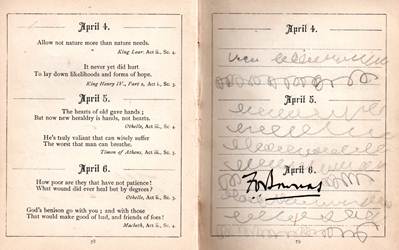 April 4.
Allow not nature more than nature needs.
King Lear, Act ii., Sc. 4.
It never yet did hurt
To lay down likelihoods and forms of hope.
King Henry IV., Part 2, Act i., Sc. 3.
April 5.
The hearts of old gave hands ;
But now new heraldry is hands, not hearts.
Othello, Act iii., Sc. 4.
He's truly valiant that can wisely suffer
The worst that man can breathe.
Timon of Athens, Act iii., Sc. 5.
April 6.
How poor are they that have not patience !
What wound did ever heal but by degrees ?
Othello, Act ii., Sc. 3.
God's benison go with you ; and with those
That would make good of bad, and friends of foes !
Macbeth, Act ii., Sc. 4.
78
April 4.
April 5.
April 6.
79